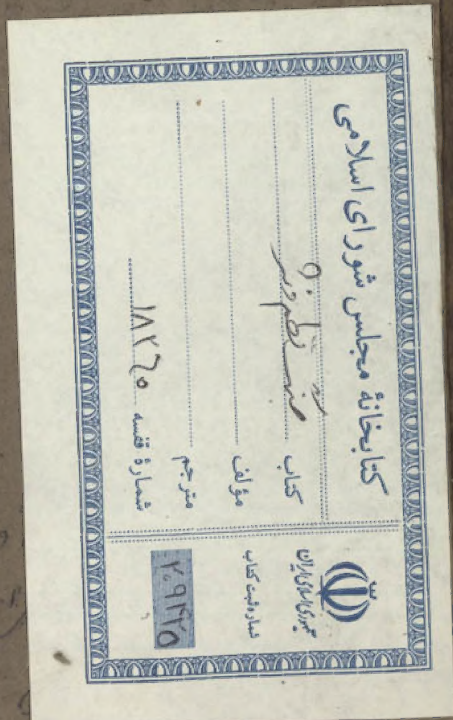 کتابخانهٔ مجلس شورای اسلامی
کتاب نظم و نثر
مؤلف
مترجم
شمارهٔ قفسه ۱۸۲۶۵
جمهوری اسلامی ایران
شماره ثبت کتاب
۲۰۹۳۲۵